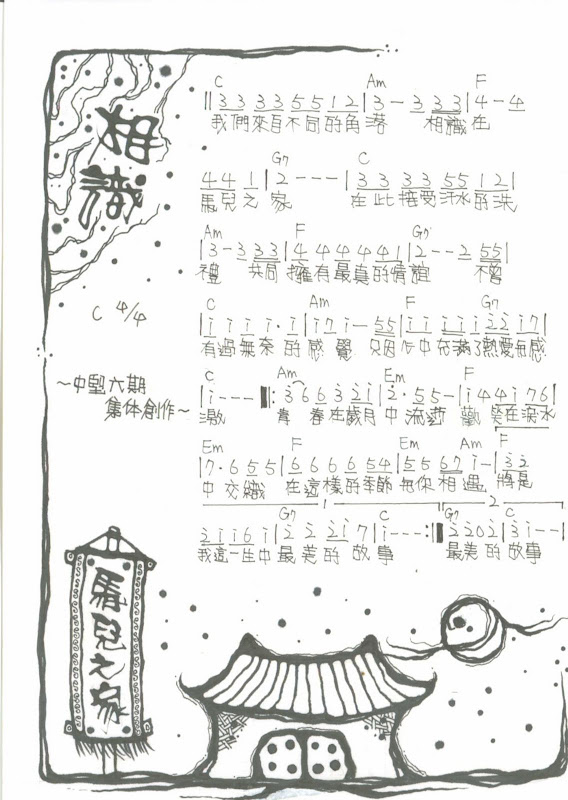 相識
C 4/4
~中壢六期
集体創作~
C Am F
||3 3 3 3 5 5 1 2|3 - 3 3 3|4 - 4
我們來自不同的角落 相識在
G7 C
4 4 1|2 - - -|3 3 3 3 5 5 1 2|
馬兒之家 在此接受汗水的洗
Am F G7
|3 - 3 3 3|4 4 4 4 4 1|2 - - 2 5 5|
禮 共同擁有最真的情誼 不曾
C Am F G7
|i i i i · i|i 7 i - 5 5|i i i i i 2 2 i 7|
有過無奈的感覺 只因心中充滿了熱愛和感
C Am Em F
|i - - -‖: 3 6 6 3 2 i|2 · 5 5 -|i 4 4 i 7 6|
激 青春在歲月中流逝 歡笑在淚水
Em F Em Am F
|7 · 6 5 5|6 6 6 6 5 4|5 5 6 7 i -|3 2
中交織 在這樣的季節和你相遇 將是
1 2
G7 C G7 C
2 i i 6 i|2 2 2 i 7|i - - - :‖2 2 0 2|3 i - -|
我這一生中最美的故事 最美的故事
馬兒之家